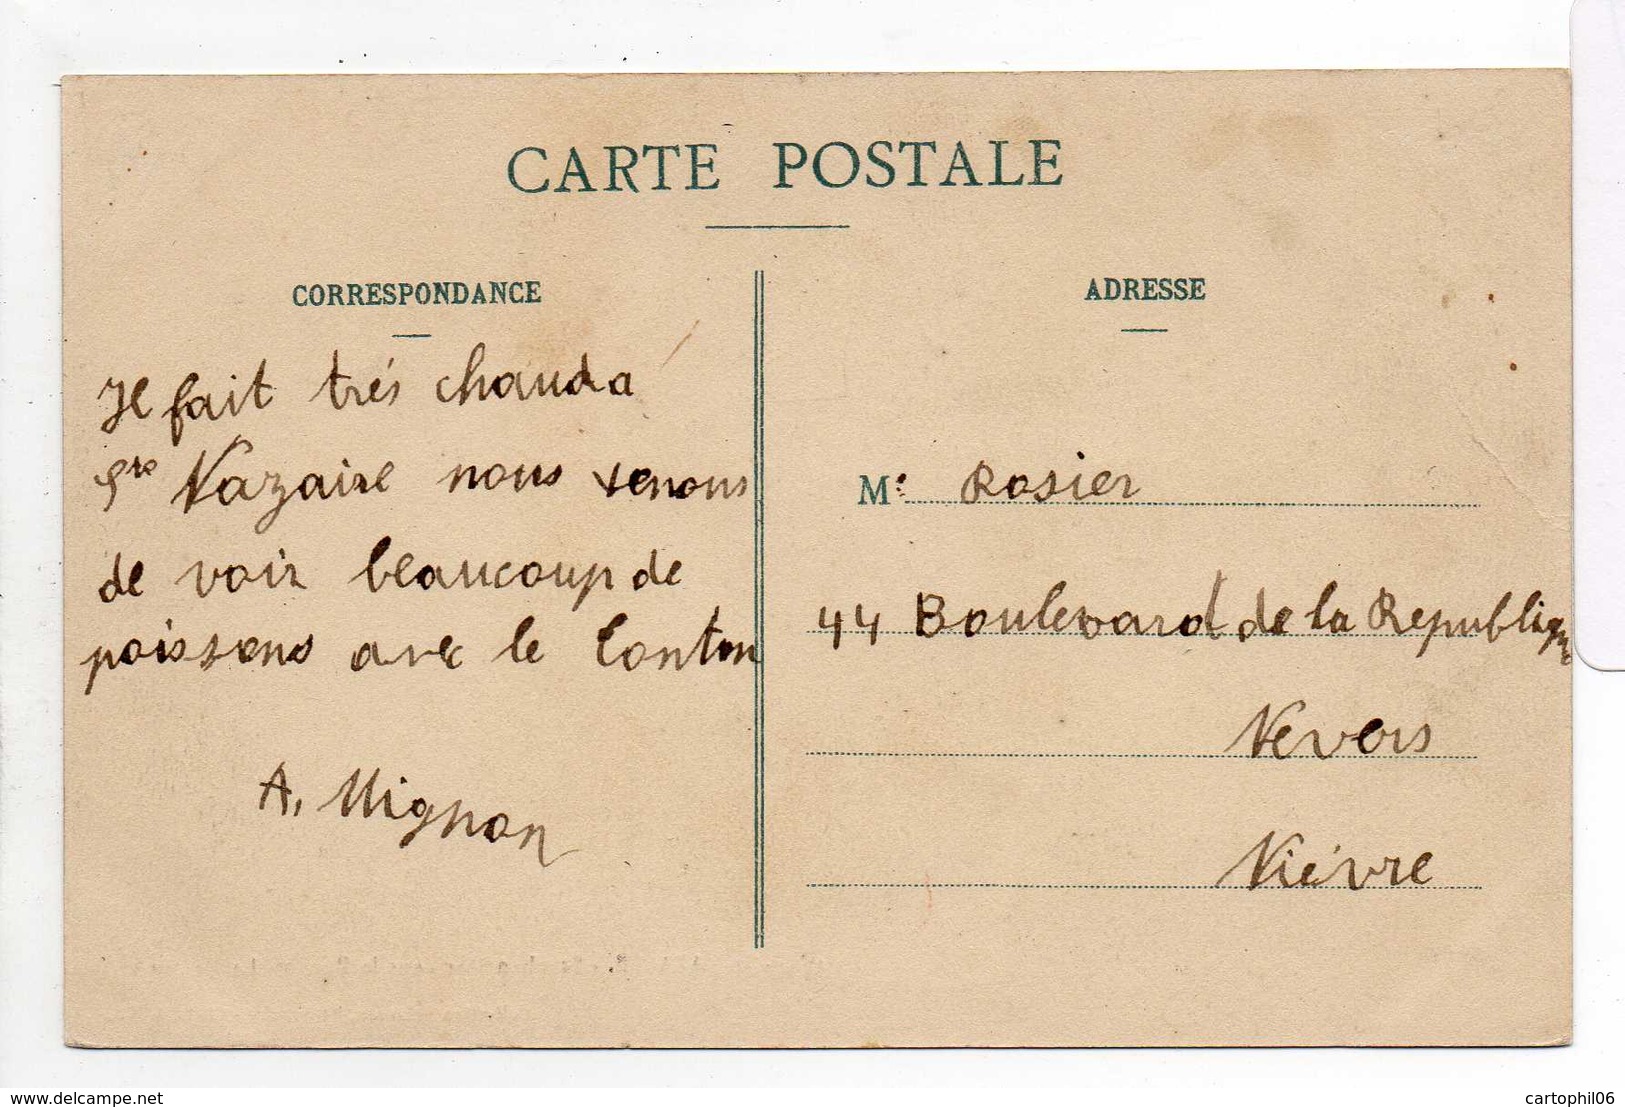 CARTE POSTALE
CORRESPONDANCE
Il fait trés chaud a
Ste Nazaire nous venons
de voir beaucoup de
poissons avec le Tonton
A. Mignon
ADRESSE
M. Rosier
44 Boulevard de la Republique
Nevers
Nièvre
www.delcampe.net
cartophil06